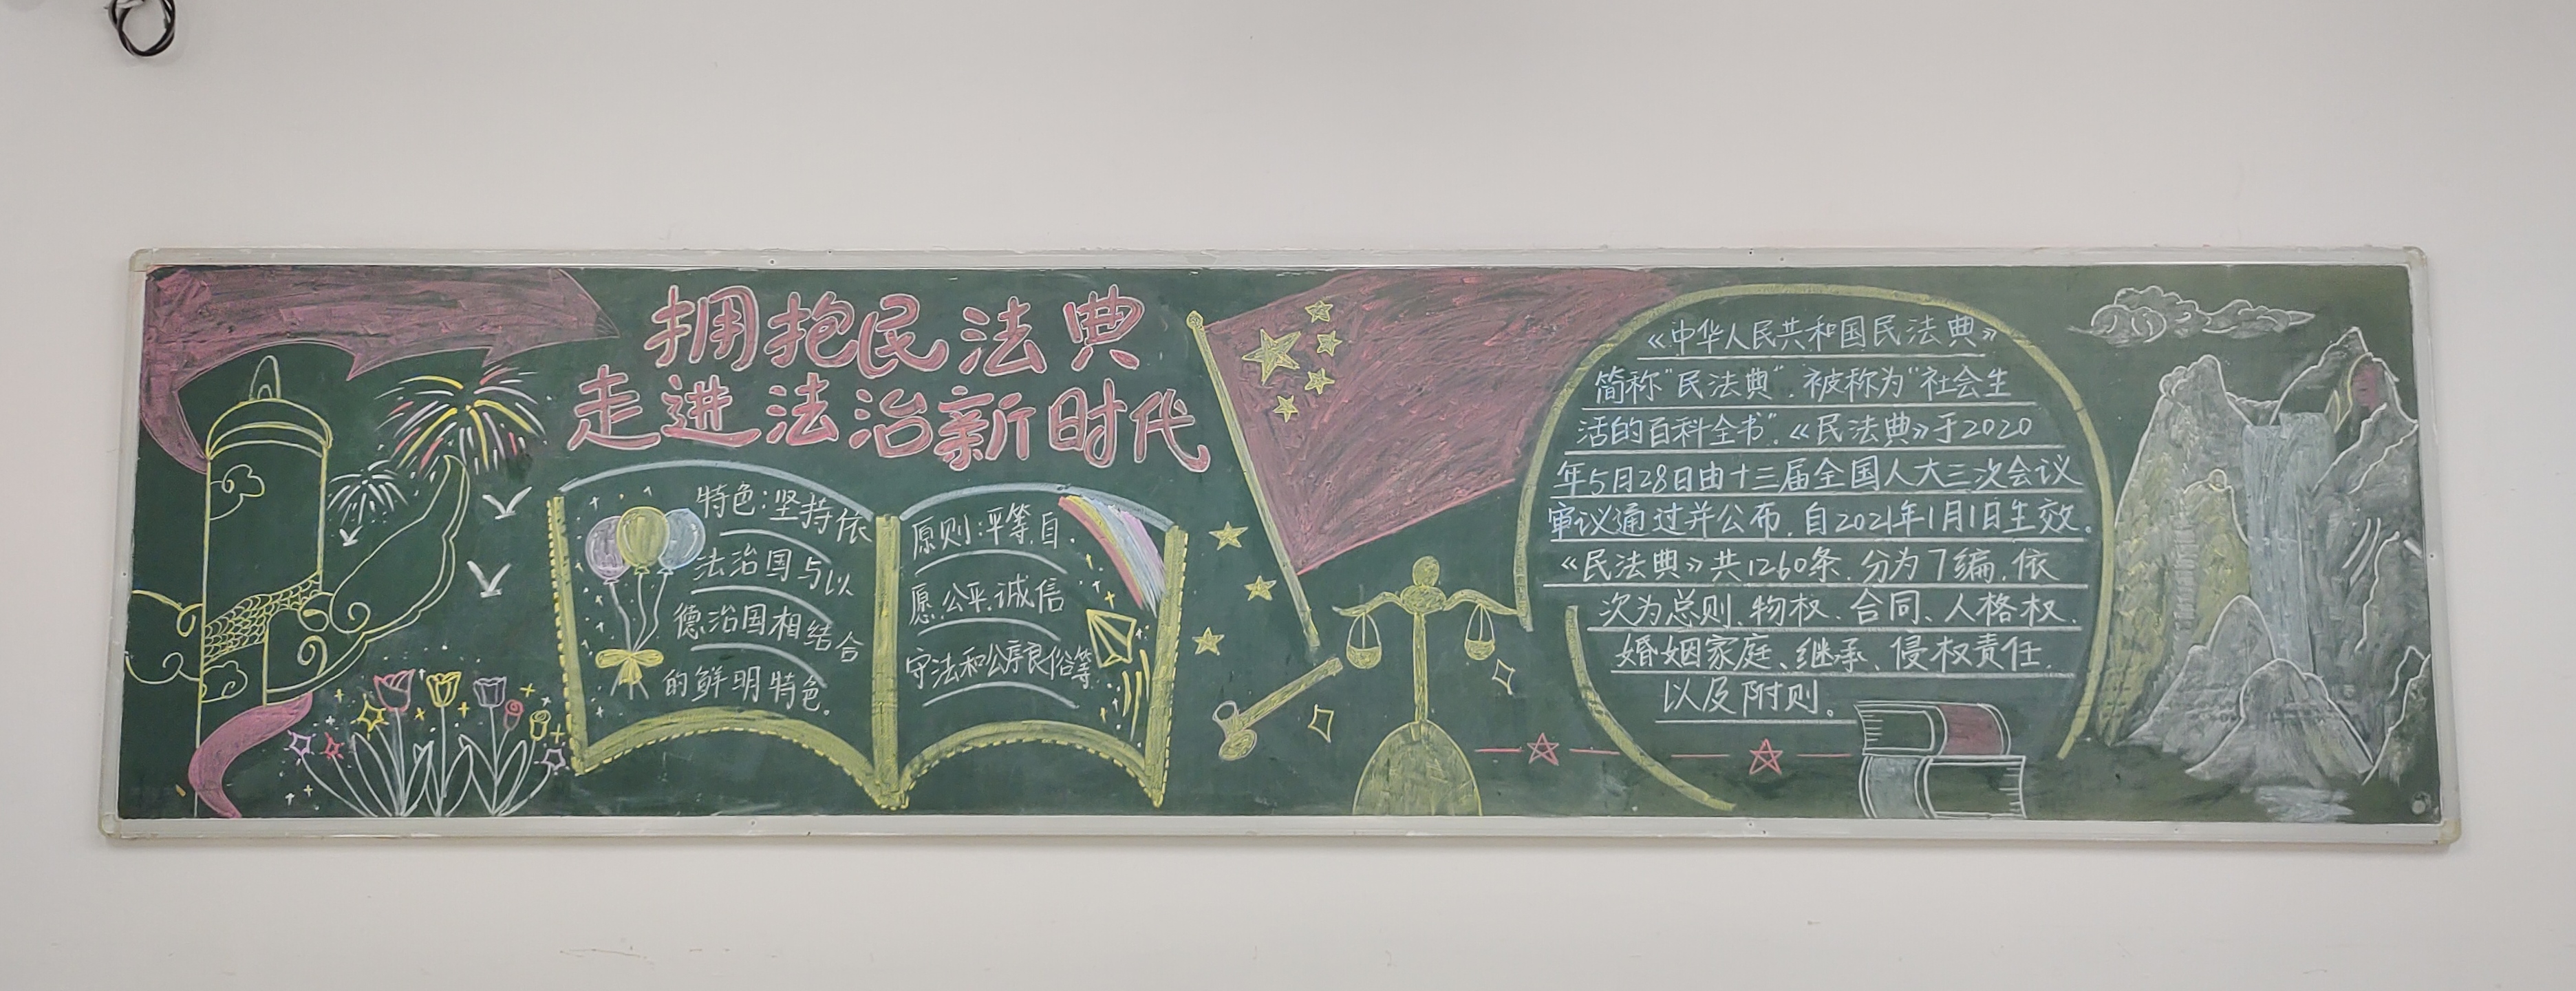 拥抱民法典
走进法治新时代
特色:坚持依
法治国与以
德治国相结合
的鲜明特色。
原则:平等.自
愿.公平.诚信
守法和公序良俗等
《中华人民共和国民法典》
简称“民法典”.被称为“社会生
活的百科全书”.《民法典》于2020
年5月28日由十三届全国人大三次会议
审议通过并公布.自2021年1月1日生效。
《民法典》共1260条.分为7编.依
次为总则、物权.合同、人格权.
婚姻家庭、继承、侵权责任.
以及附则。